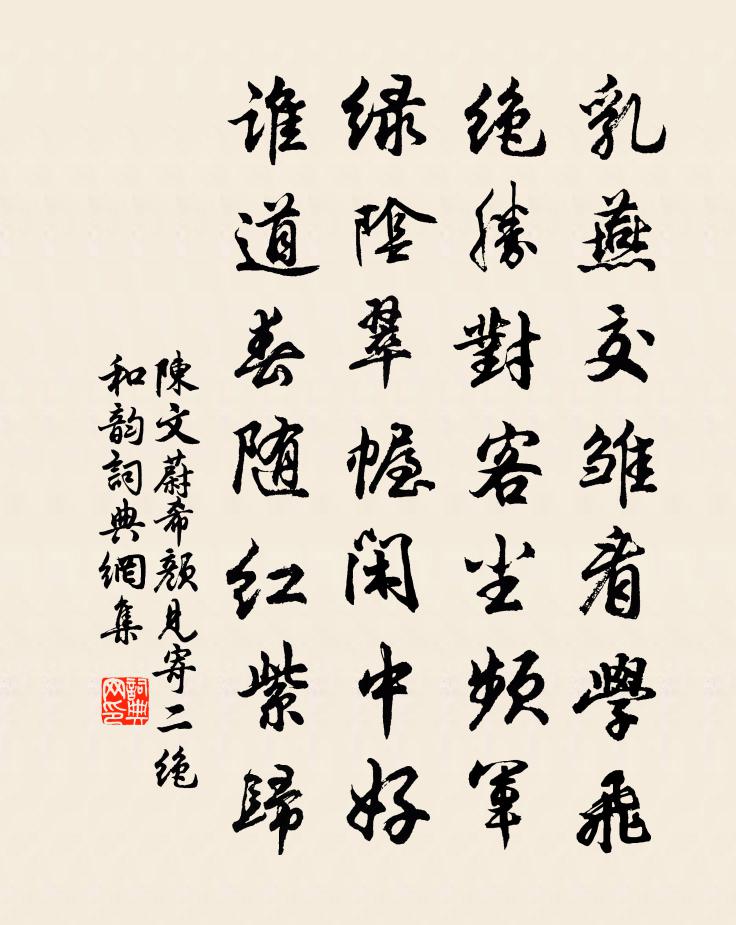 乳燕交雏看學飛
绝勝對客尘頻軍
緑陰翠幄閑中好
誰道春随红紫歸
陳文蔚希颜見寄二绝
和韵詞典網集
詞典网印